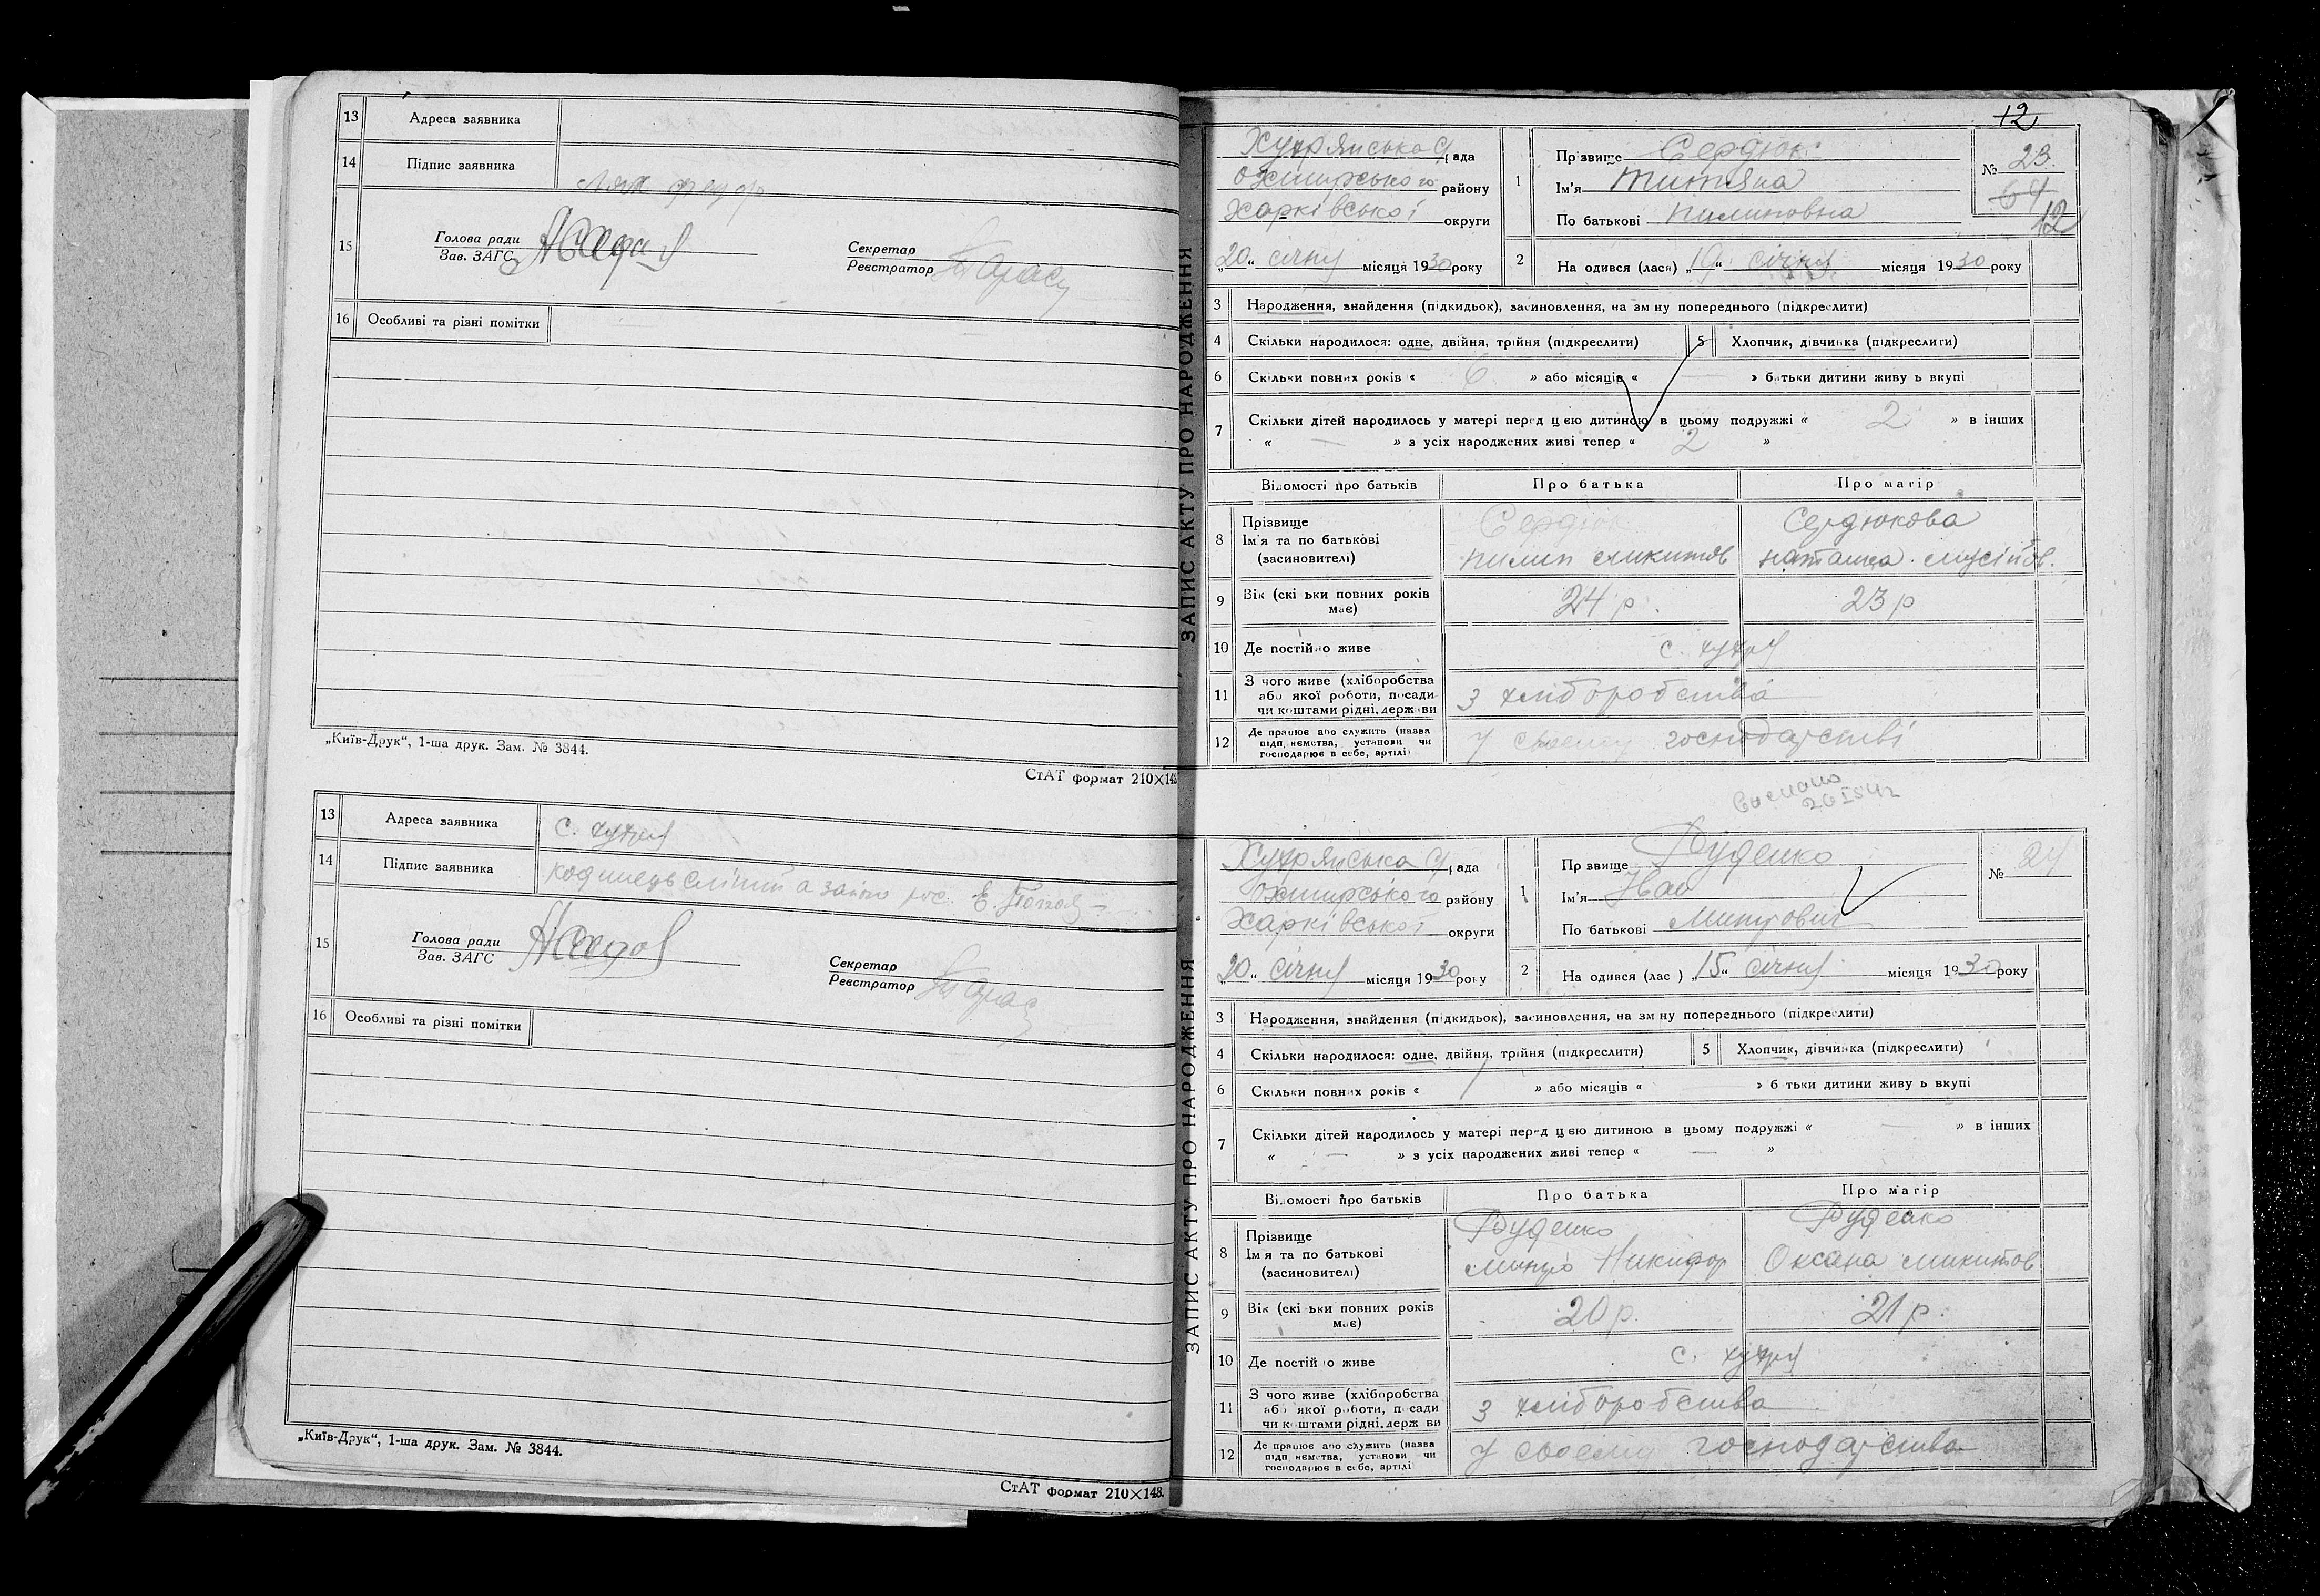 13 Адреса заявника
14 Підпис заявника
15 Голова ради
Зав. ЗАГС
Секретар
Реєстратор
16 Особливі та різні помітки
„Київ-Друк“, 1-ша друк. Зам. № 3844.
СтАТ формат 210×148
13 Адреса заявника с. хухря
14 Підпис заявника
15 Голова ради
Зав. ЗАГС
Секретар
Реєстратор
16 Особливі та різні помітки
„Київ-Друк“, 1-ша друк. Зам. № 3844.
СтАТ формат 210×148.
ЗАПИС АКТУ ПРО НАРОДЖЕННЯ
12
Хухрянська с/рада
Охтирського району
Харківської округи
„20“ січня місяця 1930 року
1 Прізвище Сердюк
Ім'я Титяна
По батькові Пилиповна
№ 23
64
12
2 На одився (лася) „19“ січня місяця 1930 року
3 Народження, знайдення (підкидьок), засиновлення, на зм ну попереднього (підкреслити)
4 Скільки народилося: одне, двійня, трійня (підкреслити) 5 Хлопчик, дівчинка (підкреслити)
6 Скільки повних років « 6 » або місяців « — » батьки дитини живу ь вкупі
7 Скільки дітей народилось у матері перед цєю дитиною в цьому подружжі « 2 » в інших
« — » з усіх народжених живі тепер « 2 »
Відомості про батьків Про батька Про матір
8 Прізвище Сердюк Сердюкова
Ім'я та по батькові
(засиновителі) Пилип Микитов Наташка Мусійов.
9 Вік (скі ьки повних років має) 24 р. 23 р
10 Де постійно живе с. хухря
11 З чого живе (хліборобства
або якої роботи, посади
чи коштами рідні, держави з хліборобства
12 Де працює або служить (назва
підп ємства, установи чи
господарює в себе, артілі) У своєму господарстві
20 I 54 г
ЗАПИС АКТУ ПРО НАРОДЖЕННЯ
Хухрянська с/рада
Охтирського району
Харківської округи
„20“ січня місяця 1930 року
1 Пр звище Руденко
Ім'я Иван
По батькові Митрович
№ 24
2 На одився (лас ) „15“ січня місяця 1930 року
3 Народження, знайдення (підкидьок), засиновлення, на зм ну попереднього (підкреслити)
4 Скільки народилося: одне, двійня, трійня (підкреслити) 5 Хлопчик, дівчинка (підкреслити)
6 Скільки повних років « 1 » або місяців « — » б тьки дитини живу ь вкупі
7 Скільки дітей народилось у матері перед цєю дитиною в цьому подружжі « — » в інших
« — » з усіх народжених живі тепер « — »
Відомості про батьків Про батька Про матір
8 Прізвище Руденко Руденко
Ім'я та по батькові
(засиновителі) Митро Никифор Оксана Микитов
9 Вік (скі ьки повних років має) 20 р. 21 р.
10 Де постій о живе с. хухря
11 З чого живе (хліборобства
або якої роботи, посади
чи коштами рідні, держ ви з хліборобства
12 Де працює або служить (назва
підп ємства, установи чи
господарює в себе, артілі У своєму господарства